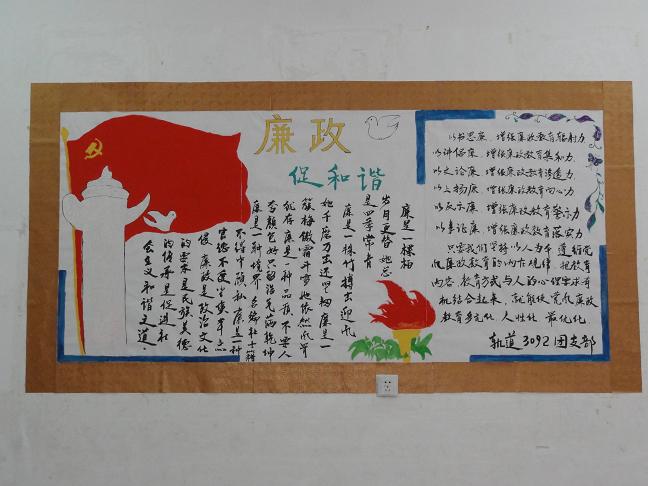 廉政
促和谐
廉是一棵柏
岁月更替她总
是四季常青
廉是一株竹搏出迎风
她千磨万击还坚韧廉是一
簇梅傲霜斗雪她依然
廉是一种品质不要人
夸颜色好只留清气满乾坤
廉是一种境界
不得中顾私廉是一种
官德不受半点
侵廉政是政治文化
的需求是民族美德
的传承是促进社
会主义和谐之道.
以书思廉 增强廉政教育辐射力
以讲倡廉 增强廉政教育集和力
以文论廉 增强廉政教育渗透力
以上扬廉 增强廉政教育向心力
以反示廉 增强廉政教育警示力
以事话廉 增强廉政教育落实力
只要我们坚持以人为本 遵循党
风廉政教育的内在规律 把教育
内容 教育方式与人的心理需求有
机结合起来 就能使党风廉政
教育多元化 人性化 最优化.
轨道3092团支部